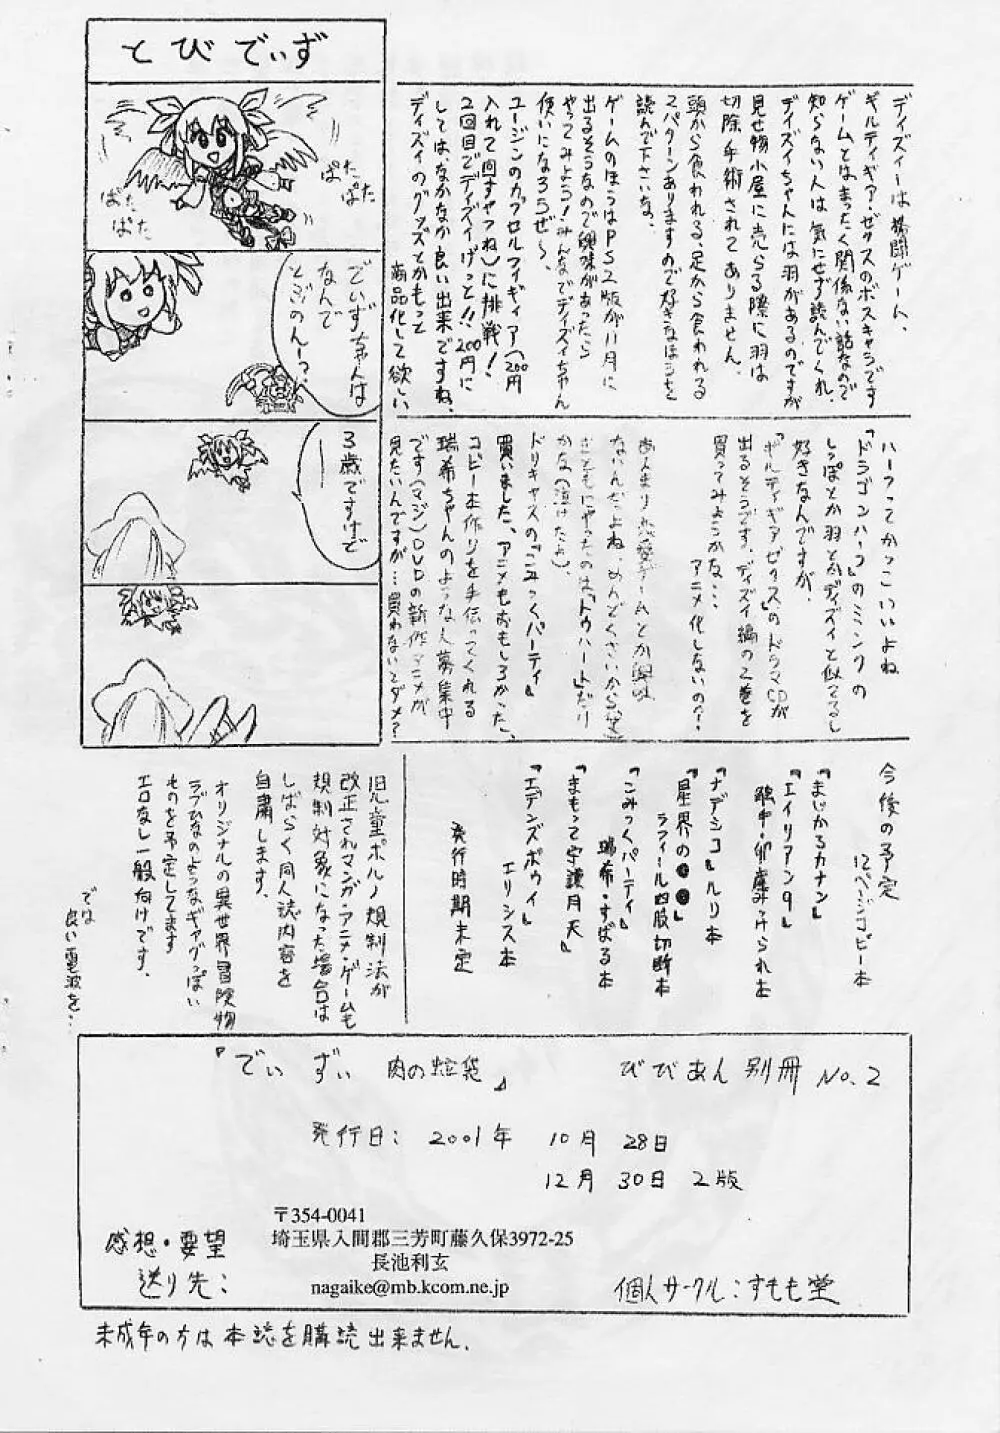 とびでぃず
ぱた
ぱた
ぱた
ぱた
でぃずちゃんは
なんで
とぶのんー?
3歳ですけど
ディズィーは格闘ゲーム、
ギルティギア・ゼクスのボスキャラです
ゲームとはまったく関係ない話なので
知らない人は気にせず読んでくれ。
ディズィちゃんには羽があるのですが
見せ物小屋に売らる際に羽は
切除手術されてありません。
頭から食われる、足から食われる
2パターンありますので好きなほうを
読んで下さいな。
ゲームのほうはPS2版が11月に
出るそうなので興味があったら
やってみよう!みんなでディズィちゃん
使いになろうぜ〜、
ユージンのカプセルフィギィア(200円
入れて回すヤツね)に挑戦!
2回目でディズィげっと!!200円に
しては、なかなか良い出来ですね、
ディズィのグッズとかもって
商品化して欲しい
ハーフってかっこいいよね
『ドラゴンハーフ』のミンクの
しっぽとか羽とかディズィと似てるし
好きなんですが、
『ギルティギアゼクス』のドラマCDが
出るそうです。ディズィ編の2巻を
買ってみようかな…
アニメ化しないの?
あんまり恋愛ゲームとか興味
ないんだよね、めんどくさいから(笑)
まともにやったのは、「トゥハート」だけ
かな(泣けたよ)、
ドリキャスの『こみっくパーティ』
買いました、アニメもおもしろかった、
コピー本作りを手伝ってくれる
瑞希ちゃんのような人募集中
です(マジ)DVDの新作アニメが
見たいんですが…買わないとダメ?
今後の予定
12ページコピー本
『まじかるカナン』
『エイリアン9』
『ナデシコ』ルリ本
『星界の●●』
ラフィール四肢切断本
『こみっくパーティ』
瑞希・すばる本
『まもって守護月天』
『エデンズボゥイ』
エリシス本
発行時期未定
児童ポルノ規制法が
改正されマンガ・アニメ・ゲームも
規制対象になった場合は
しばらく同人誌内容を
自粛します。
オリジナルの異世界冒険物
ラブひなのようなギャグっぽい
ものを予定してます
エロなし一般向けです。
では
良い電波を…
『でぃずぃ 肉の 袋』 びびあん 別冊 No.2
発行日: 2001年 10月 28日
12月 30日 2版
〒354-0041
埼玉県入間郡三芳町藤久保3972-25
長池利玄
nagaike@mb.kcom.ne.jp
感想・要望
送り先:
個人サークル:すもも堂
未成年の方は本誌を購読出来ません.